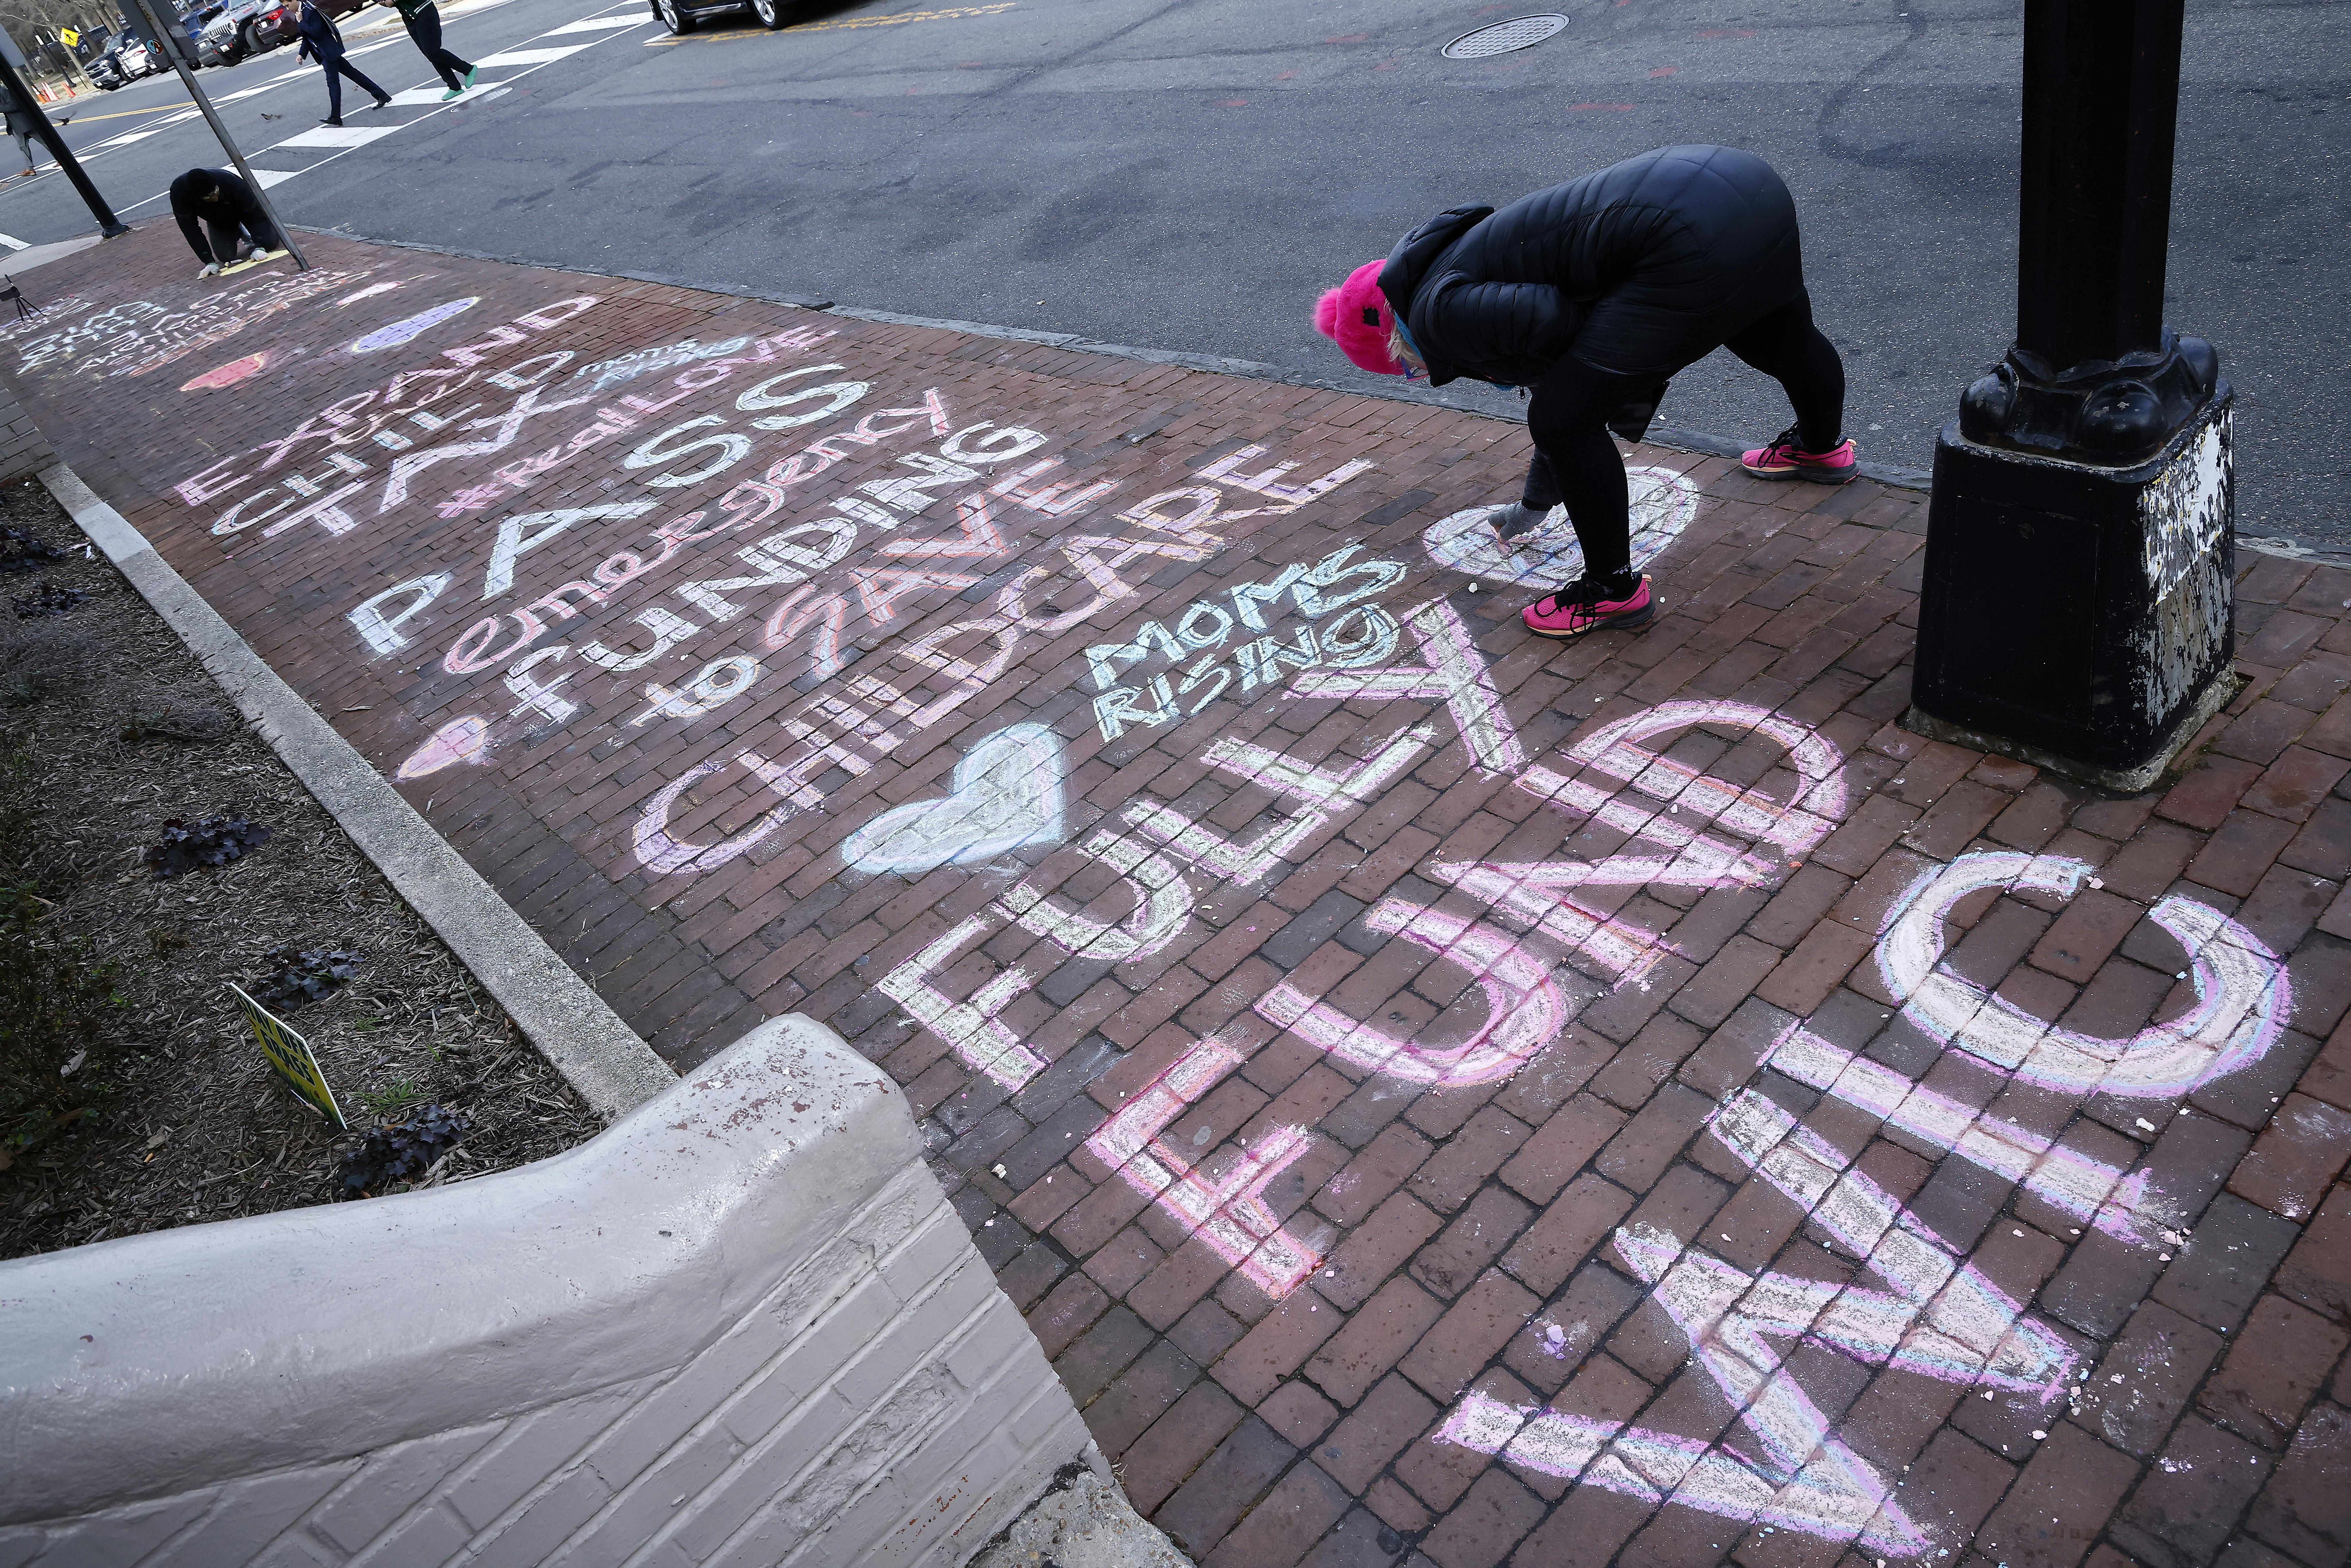 EXPAND
CHILD
TAX
moms
RISING
#RealLOVE
PASS
emergency
FUNDING
to SAVE
CHILDCARE
MOMS
RISING
FULLY
FUND
WIC
OFF
GRASS